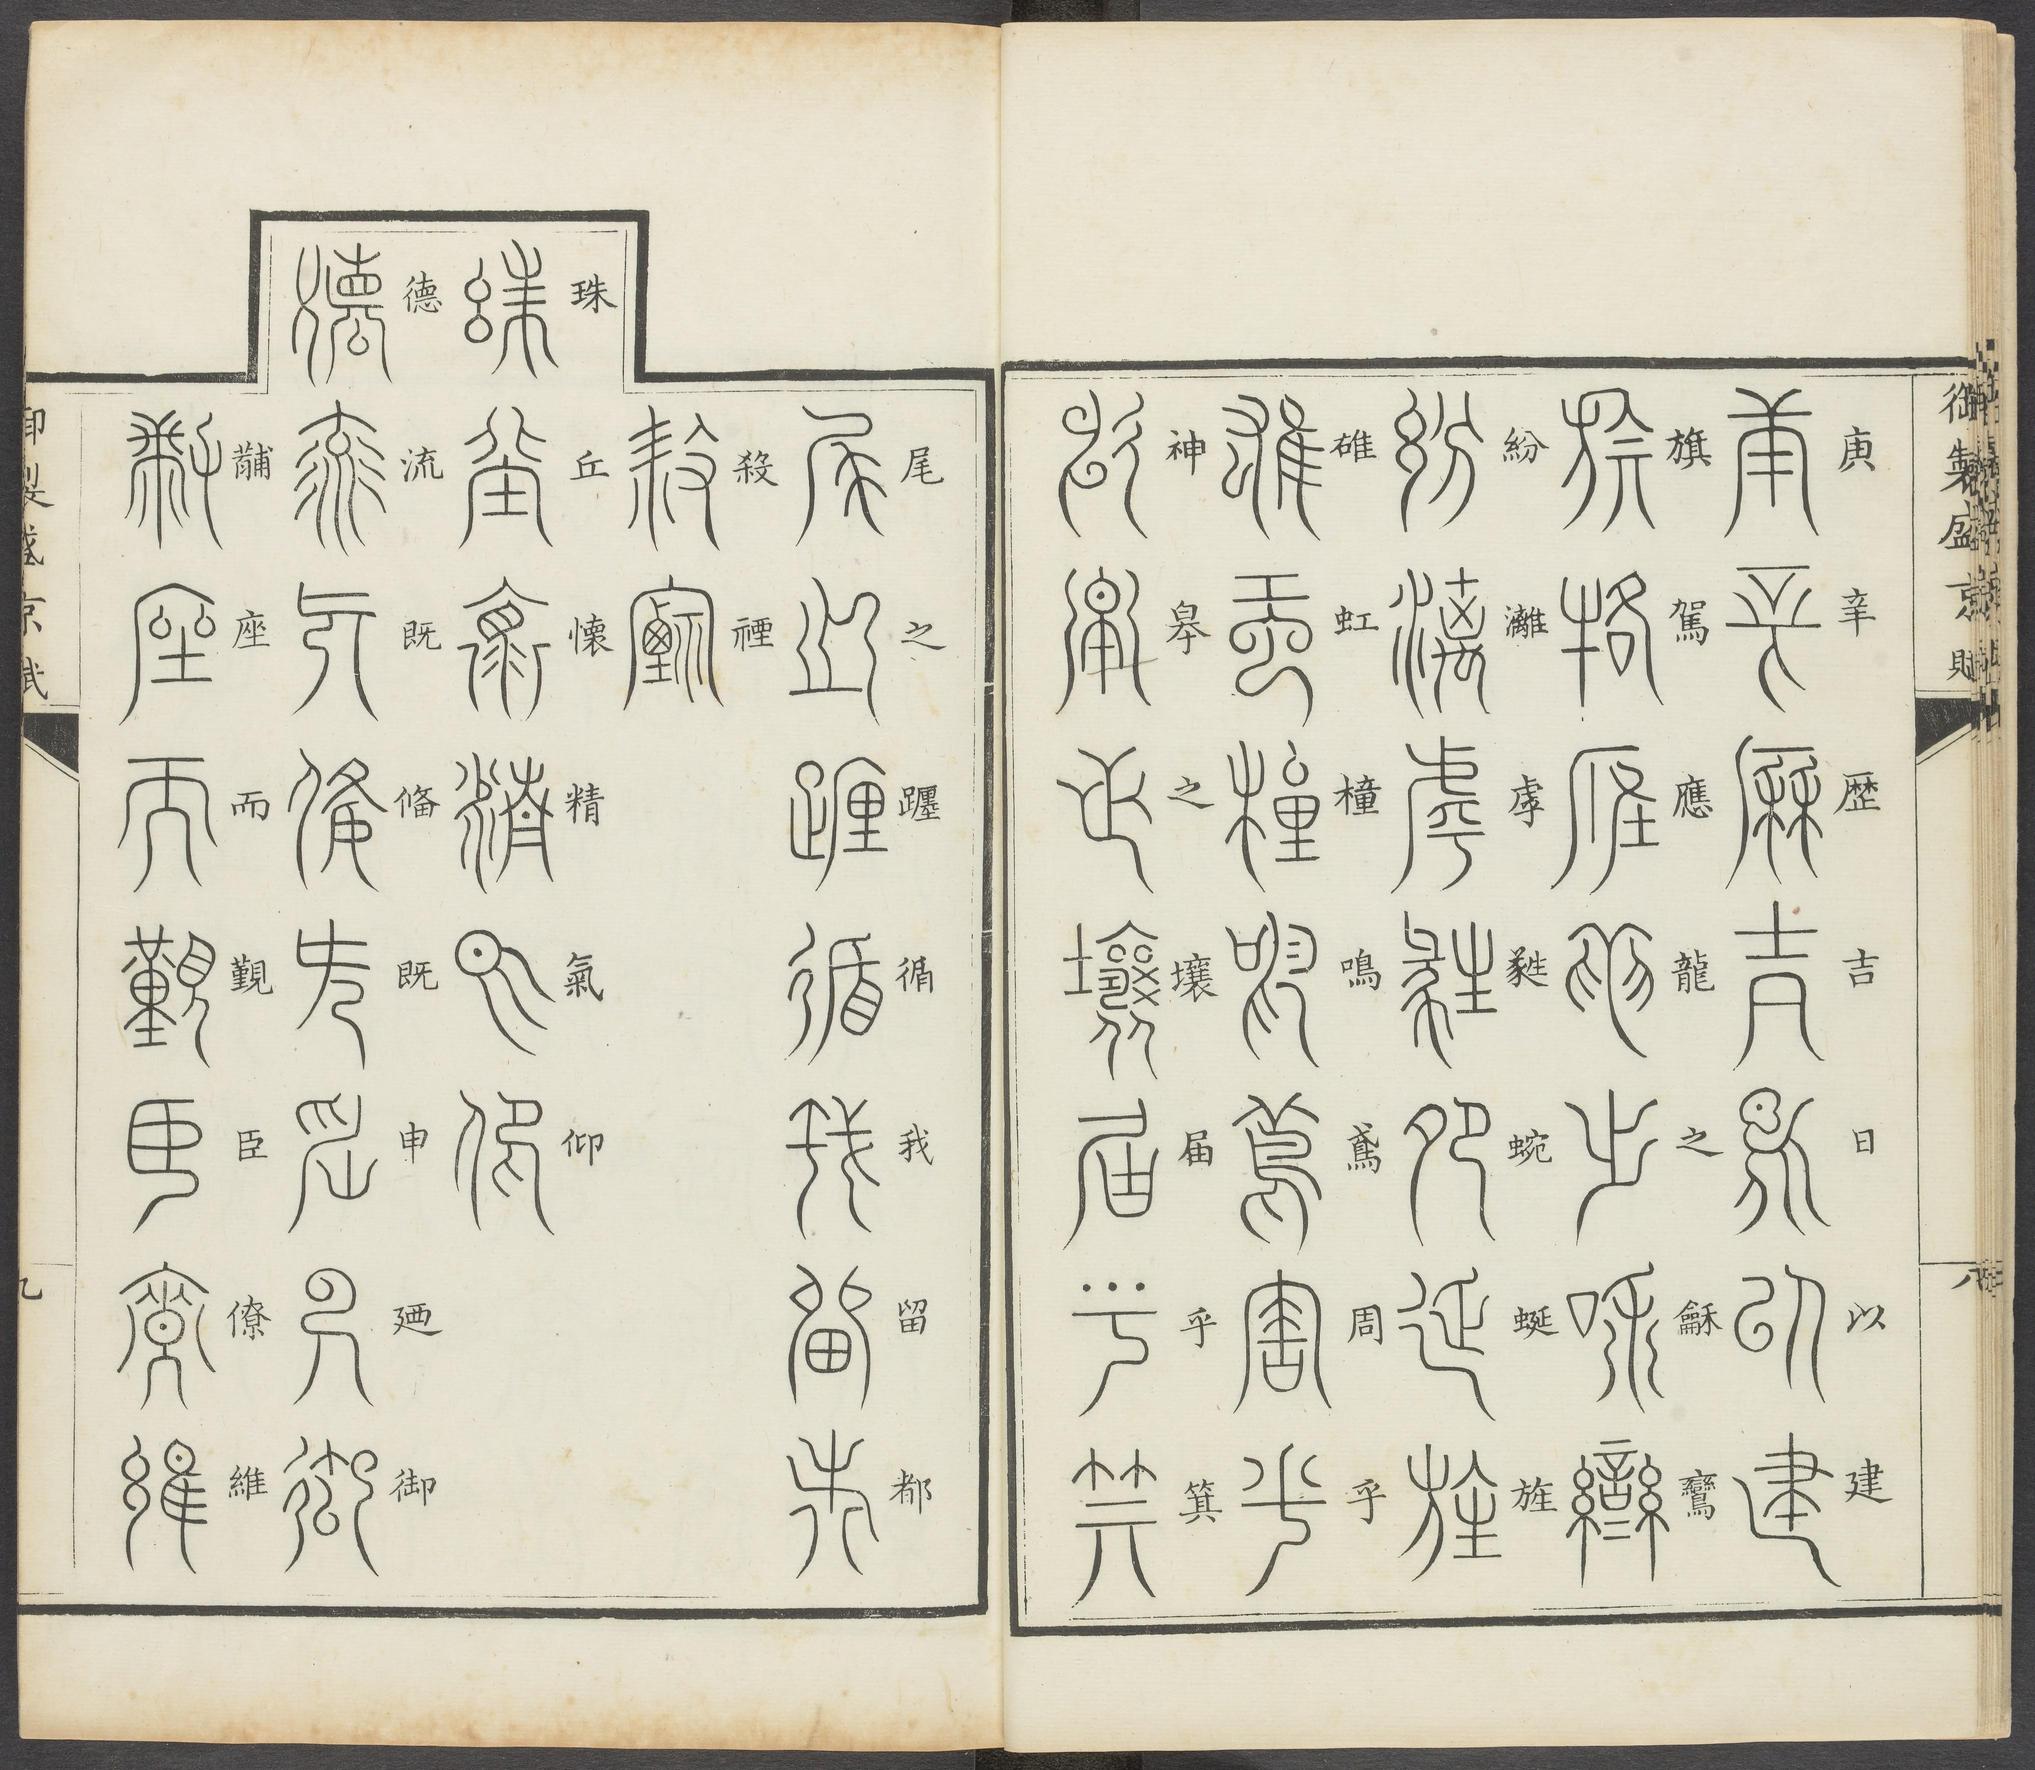 御製盛京賦
八
庚辛歷吉日以建
旗駕應龍之龢鸞
紛灕虖毿蜿蜒旌
碓虹橦鳴鳶周乎
神皋之壤届乎箕
尾之躔循我留都
殺禋
珠丘懷精氣仰
德流既僃既申廼御
黼座而觀臣僚維
御製盛京賦
九